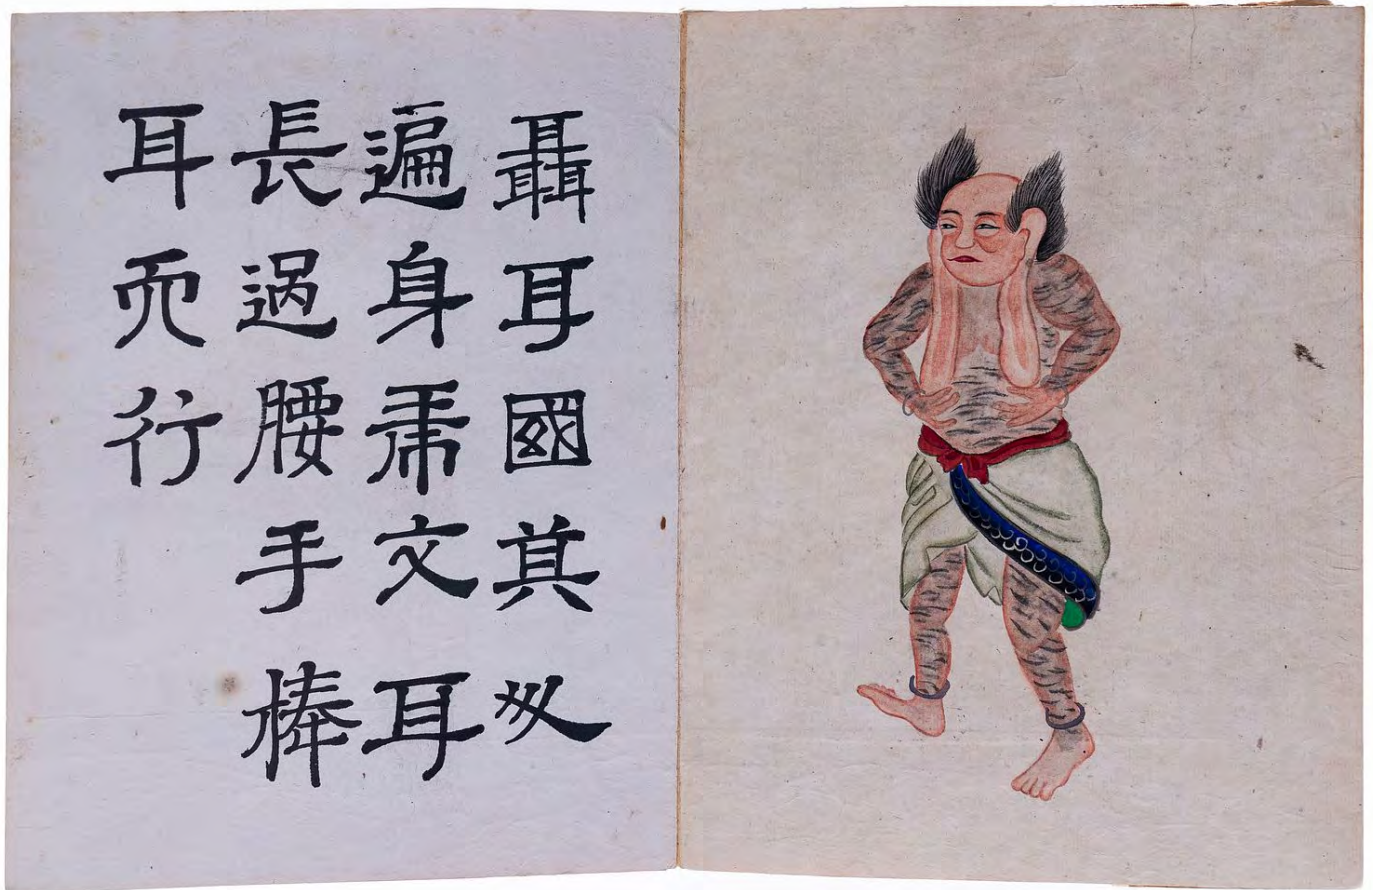 聶耳國其人
遍身虎文耳
長過腰手棒
耳而行